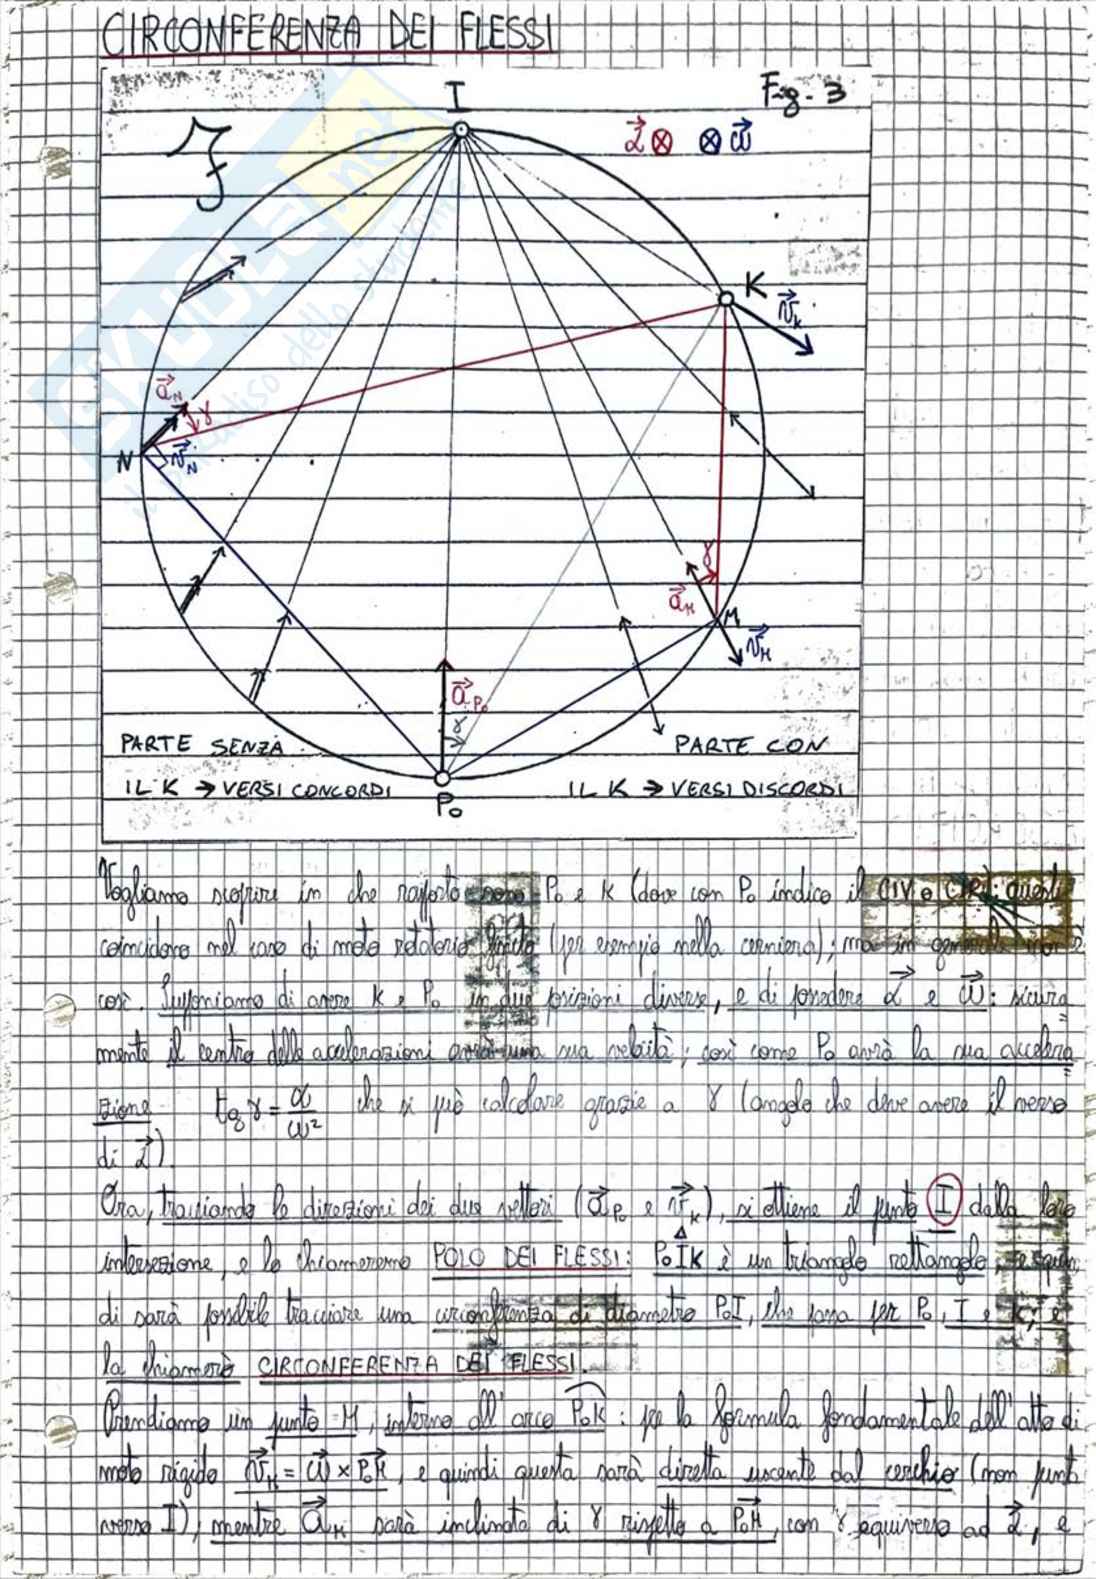 CIRCONFERENZA DEI FLESSI
I
Fig. 3
F
α ω
K
v_K
a_N γ
N
v_N
γ
a_M
M
v_M
a_P₀
γ
PARTE SENZA
IL K → VERSI CONCORDI
PARTE CON
IL K → VERSI DISCORDI
P₀
Vogliamo scoprire in che rapporto sono P₀ e K (dove con P₀ indico il CIV o CIR): questi
coincidono nel caso di moto rotatorio finito (per esempio nella cerniera); ma in generale non è
così. Supponiamo di avere K e P₀ in due posizioni diverse, e di possedere α e ω: sicura
mente il centro delle accelerazioni avrà una sua velocità, così come P₀ avrà la sua accelera
zione tg γ = α/ω² che si può calcolare grazie a γ (angolo che deve avere il verso
di α).
Ora, tracciando le direzioni dei due vettori (a_P₀ e v_K), si ottiene il punto I dalla loro
intersezione, e lo chiameremo POLO DEI FLESSI: P₀IK è un triangolo rettangolo, e quin
di sarà possibile tracciare una circonferenza di diametro P₀I, che passa per P₀, I e K, e
la chiamerò CIRCONFERENZA DEI FLESSI.
Prendiamo un punto M, interno all'arco P₀K: per la formula fondamentale dell'atto di
moto rigido v_M = ω × P₀M, e quindi questa sarà diretta uscente dal cerchio (non punta
verso I), mentre a_M sarà inclinata di γ rispetto a P₀M, con γ equiverso ad α, e